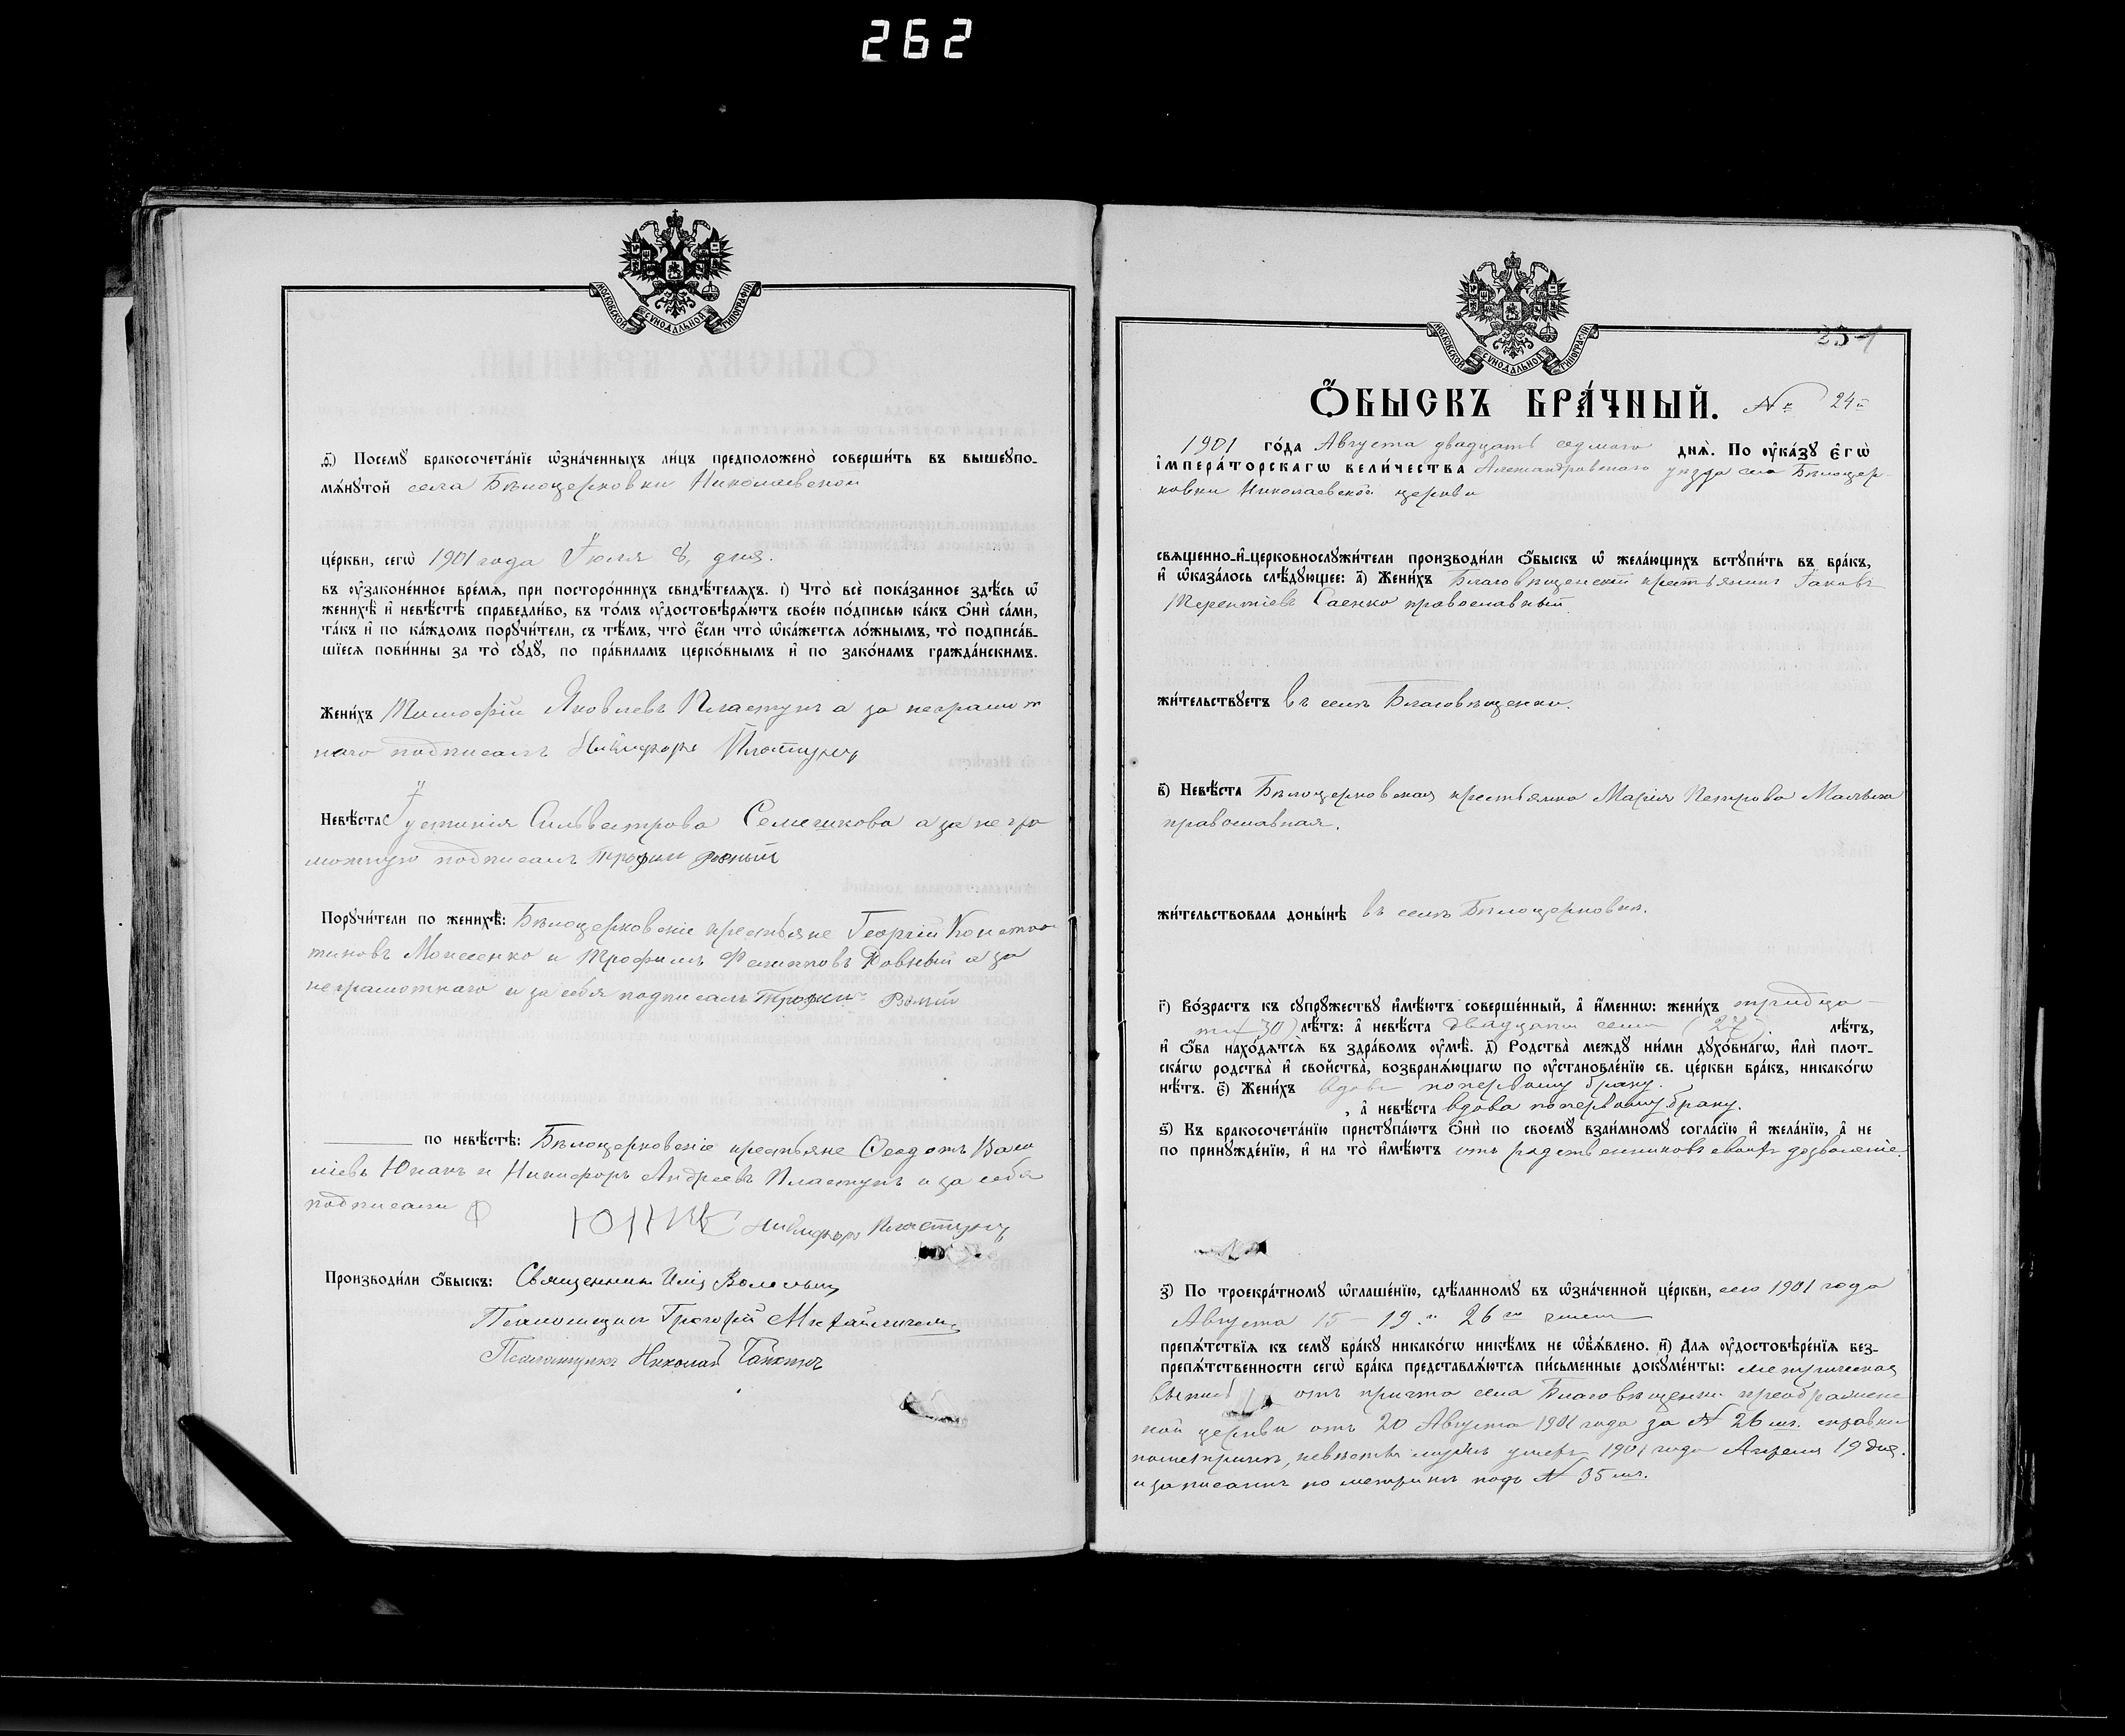 262
МОСКОВСКОЙ СѴНОДАЛЬНОЙ ТИПОГРАФІИ
д҃і) Посемꙋ̀ бракосочета́нїе ѡ҆зна́ченныхъ ли́цъ предположено̀ соверши́ть въ вышеꙋпо-
мѧ́нꙋтой села Бѣлоцерковки Николаевской
це́ркви, сегѡ̀ 1901 года Іюля 8, дня.
въ ᲂу҆законе́нное вре́мѧ, при посторо́ннихъ свидѣ́телѧхъ. і҃) Что̀ всѐ пока́занное здѣ́сь ѡ҆
женихѣ̀ и҆ невѣ́стѣ справедли́во, въ то́мъ ᲂу҆достовѣрѧ́ютъ свое́ю по́дписью ка́къ ѻ҆нѝ са́ми,
та́къ и҆ по ка́ждомъ порꙋчи́тели, съ тѣ́мъ, что̀ є҆́сли что̀ ѡ҆ка́жетсѧ ло́жнымъ, то̀ подписа́в-
шїесѧ пови́нны за то̀ сꙋдꙋ̀, по пра́виламъ церко́внымъ и҆ по зако́намъ гражда́нскимъ.
Жени́хъ Тимофій Яковлевъ Пластунъ а за неграмот
наго подписалъ Никифоръ Пластунъ
Невѣ́ста Іустинія Сильвестрова Семешкова а за негра
мотную подписалъ Трофим Ровный
Порꙋчи́тели по женихѣ̀: Бѣлоцерковскіе крестьяне Георгій Констан
тиновъ Моисеенко и Трофимъ Филипповъ Ровный а за
неграмотнаго и за себя подписалъ Трофим Ровный
по невѣ́стѣ: Бѣлоцерковскіе крестьяне Ѳеодотъ Васи
ліевъ Юнакъ и Никифоръ Андреевъ Пластунъ и за себя
подписали Ф Юнак Никифоръ Пластунъ
Производи́ли ѻ҆́быскъ: Священникъ Илія
Псаломщикъ Григорій
Николай
МОСКОВСКОЙ СѴНОДАЛЬНОЙ ТИПОГРАФІИ
251
Ѻ҆́БЫСКЪ БРА́ЧНЫЙ. № 24й
1901 го́да Августа двадцать седмаго днѧ̀. По ᲂу҆ка́зꙋ є҆гѡ̀
і҆мпера́торскагѡ вели́чества Александровского уѣзда села Бѣлоцер-
ковки Николаевской церкви
свѧщенно-и҆-церковнослꙋжи́тели производи́ли ѻ҆́быскъ ѡ҆ жела́ющихъ встꙋпи́ть въ бра́къ,
и҆ ѡ҆каза́лось слѣ́дꙋющее: а҃) Жени́хъ Благовѣщенскій крестьянинъ Іаковъ
Терентіевъ Саенко православный
жи́тельствꙋетъ въ селѣ Благовѣщенки.
в҃) Невѣ́ста Бѣлоцерковская крестьянка Марія Петрова
православная.
жи́тельствовала доны́нѣ въ селѣ Бѣлоцерковки.
г҃) Во́зрастъ къ сꙋпрꙋ́жествꙋ и҆мѣ́ютъ соверше́нный, а҆ и҆́меннѡ: жени́хъ тридца-
ти (30) лѣ́тъ: а҆ невѣ́ста двадцати семи (27). лѣ́тъ,
и҆ ѻ҆́ба нахо́дѧтсѧ̀ въ здра́вомъ ᲂу҆мѣ̀. д҃) Родства̀ междꙋ̀ ни́ми дꙋхо́внагѡ, и҆лѝ плот-
ска́гѡ родства̀ и҆ сво́йства̀, возбранѧ́ющагѡ по ᲂу҆становле́нїю св. це́ркви бра́къ, никако́гѡ
нѣ́тъ. є҃) Жени́хъ вдовъ по первому браку.
, а҆ невѣ́ста вдова по первому браку.
ѕ҃) Къ бракосочета́нїю пристꙋпа́ютъ ѻ҆нѝ по своемꙋ̀ взаи́мномꙋ согла́сїю и҆ жела́нїю, а҆ не
по принꙋжде́нїю, и҆ на то̀ и҆мѣ́ютъ отъ родственниковъ своихъ дозволеніе.
з҃) По троекра́тномꙋ ѡ҆глаше́нїю, сдѣ́ланномꙋ въ ѡ҆зна́ченной це́ркви, сего 1901 года
Августа 15 – 19 и 26 го числ
препѧ́тствїѧ къ семꙋ̀ бра́кꙋ никако́гѡ никѣ́мъ не ѡ҆б̾ѧ́влено. и҃) Длѧ ᲂу҆достовѣре́нїѧ без-
препѧ́тственности сегѡ̀ бра́ка представлѧ́ютсѧ пи́сьменные докꙋме́нты: метрическая
выпись отъ причта села Благовѣщенки преображенс
кой церкви отъ 20 Августа 1901 года за № 26 мъ. справки
по метрикѣ, невѣсты мужъ умеръ 1901 года Апреля 19 дня.
и записанъ по метрикѣ подъ № 35 мъ.